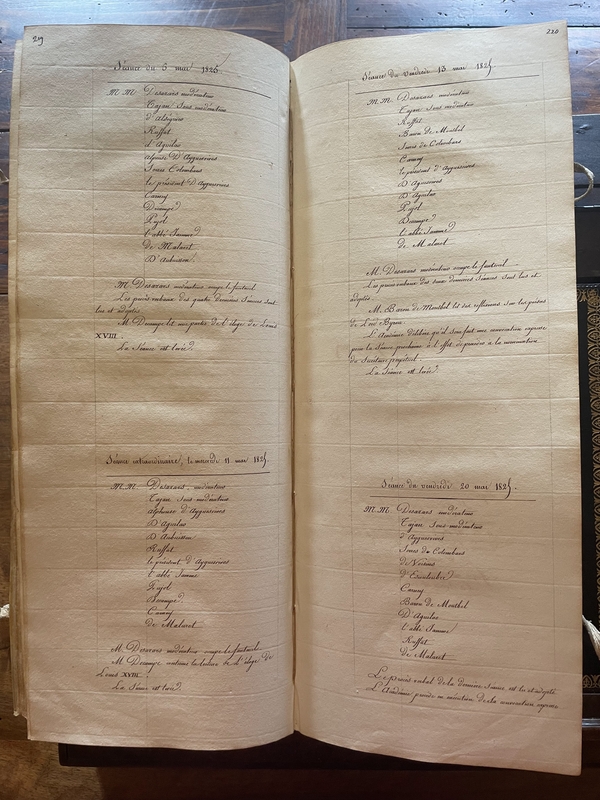 219
Séance du 6 mai 1825
M.M. Desazars modérateur
Cajan Sous modérateur
d'
Ruffat
d'Aguilar
alphonse D'Ayguesvives
Jouës Colombars
le président D'Ayguesvives
Carney
Decampe
Pujol
l'abbé Jamme
de Malaret
D'Aubuisson.
M. Desazars modérateur occupe le fauteuil.
Les procès verbaux des quatre dernières Séances sont
lus et adoptés.
M. Decampe lit une partie de l'éloge de Louis
XVIII.
La Séance est levée.
Séance extraordinaire, le mercredi 11 mai 1825.
M.M. Desazars, modérateur
Cajan Sous modérateur
alphonse d'Ayguesvives
D'Aguilar
D'Aubuisson
Ruffat
le président D'Ayguesvives
l'abbé Jamme
Pujol
Decampe
Carney
de Malaret
M. Desazars modérateur occupe le fauteuil.
M. Decampe continue la lecture de l'éloge de
Louis XVIII.
La Séance est levée.
220
Séance du vendredi 13 mai 1825
M.M. Desazars modérateur
Cajan Sous modérateur
Ruffat
Baron de Montbel
Jouës de Colombars
Carney
le président d'Ayguesvives
D'Ayguesvives
D'Aguilar
Pujol
Decampe
l'abbé Jamme
de Malaret
M. Desazars modérateur occupe le fauteuil.
Les procès verbaux des deux dernières Séances sont lus et
adoptés.
M. Baron de Montbel lit des réflexions sur les poésies
de Lord Byron.
L'Académie délibère qu'il sera fait une convocation expresse
pour la Séance prochaine à l'effet de procéder à la nomination
de Secrétaire perpétuel.
La Séance est levée.
Séance du vendredi 20 mai 1825.
M.M. Desazars modérateur
Cajan Sous modérateur
d'Ayguesvives
Jouës de Colombars
de
d'Escouloubre
Carney
Baron de Montbel
D'Aguilar
l'abbé Jamme
Ruffat
de Malaret
Le procès verbal de la dernière Séance est lu et adopté.
L'Académie procède en exécution de la convocation expresse